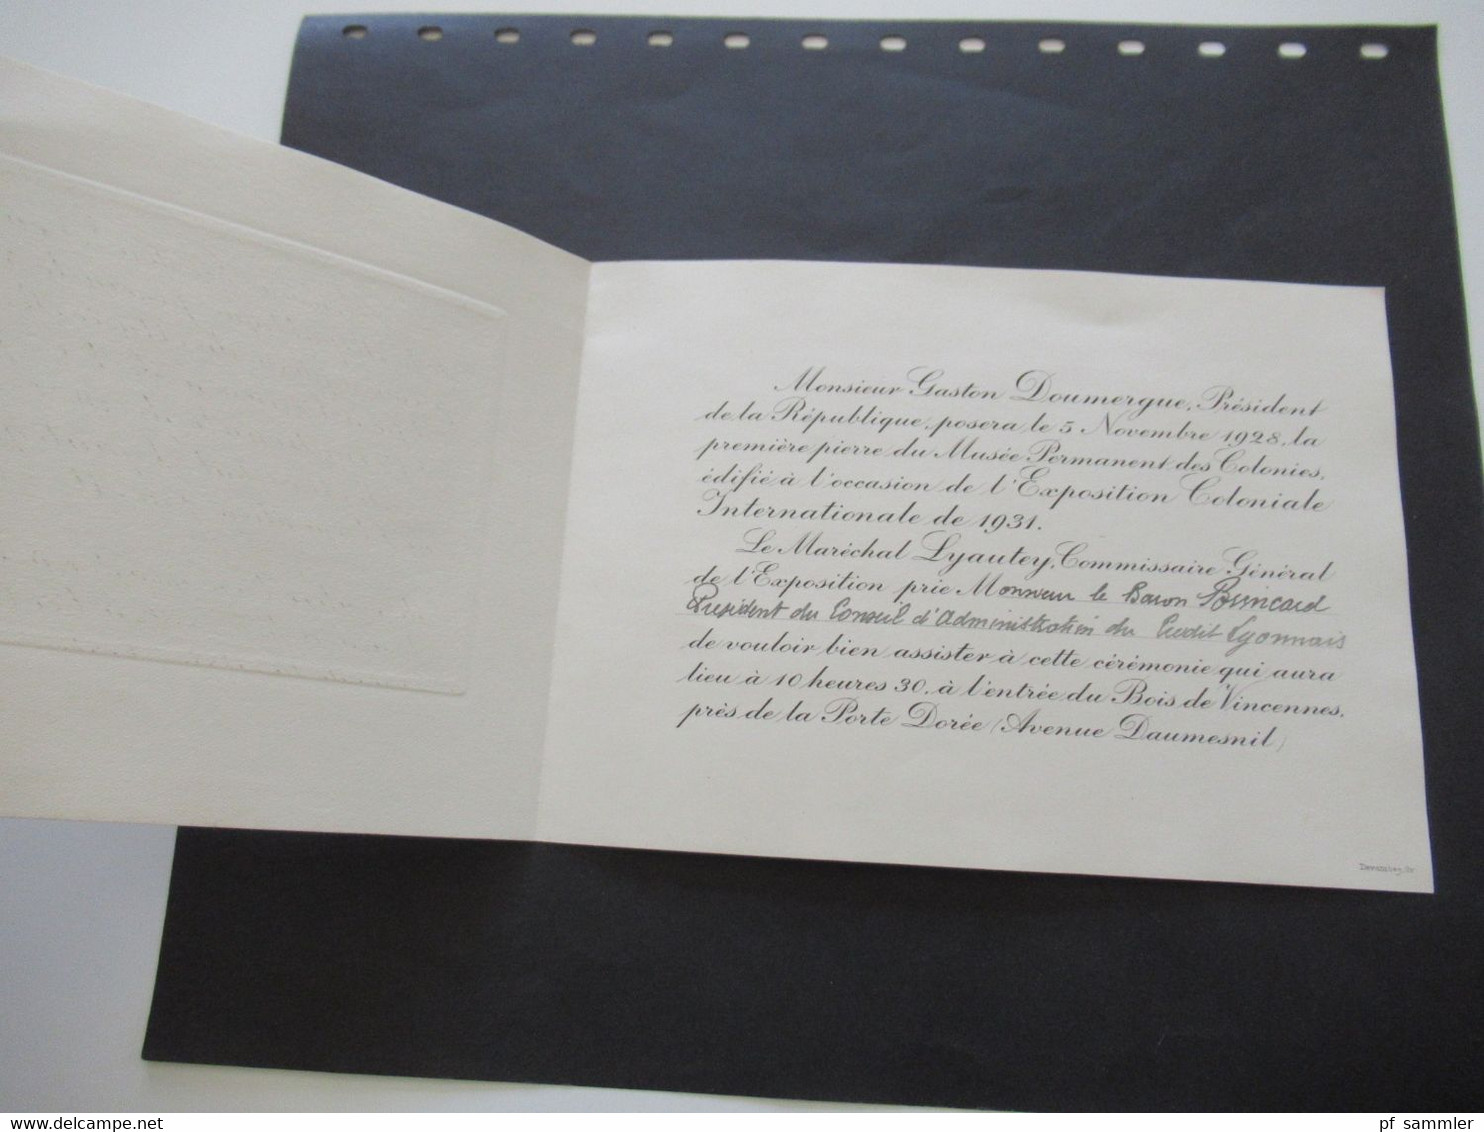 Monsieur Gaston Doumergue, Président
de la République, posera, le 5 Novembre 1928, la
première pierre du Musée Permanent des Colonies,
édifié à l'occasion de l'Exposition Coloniale
Internationale de 1931.
Le Maréchal Lyautey, Commissaire Général
de l'Exposition prie Monsieur le Baron Brincard
Président du Conseil d'Administration du Crédit Lyonnais
de vouloir bien assister à cette cérémonie qui aura
lieu à 10 heures 30, à l'entrée du Bois de Vincennes,
près de la Porte Dorée (Avenue Daumesnil)
delcampe.net
pf_sammler